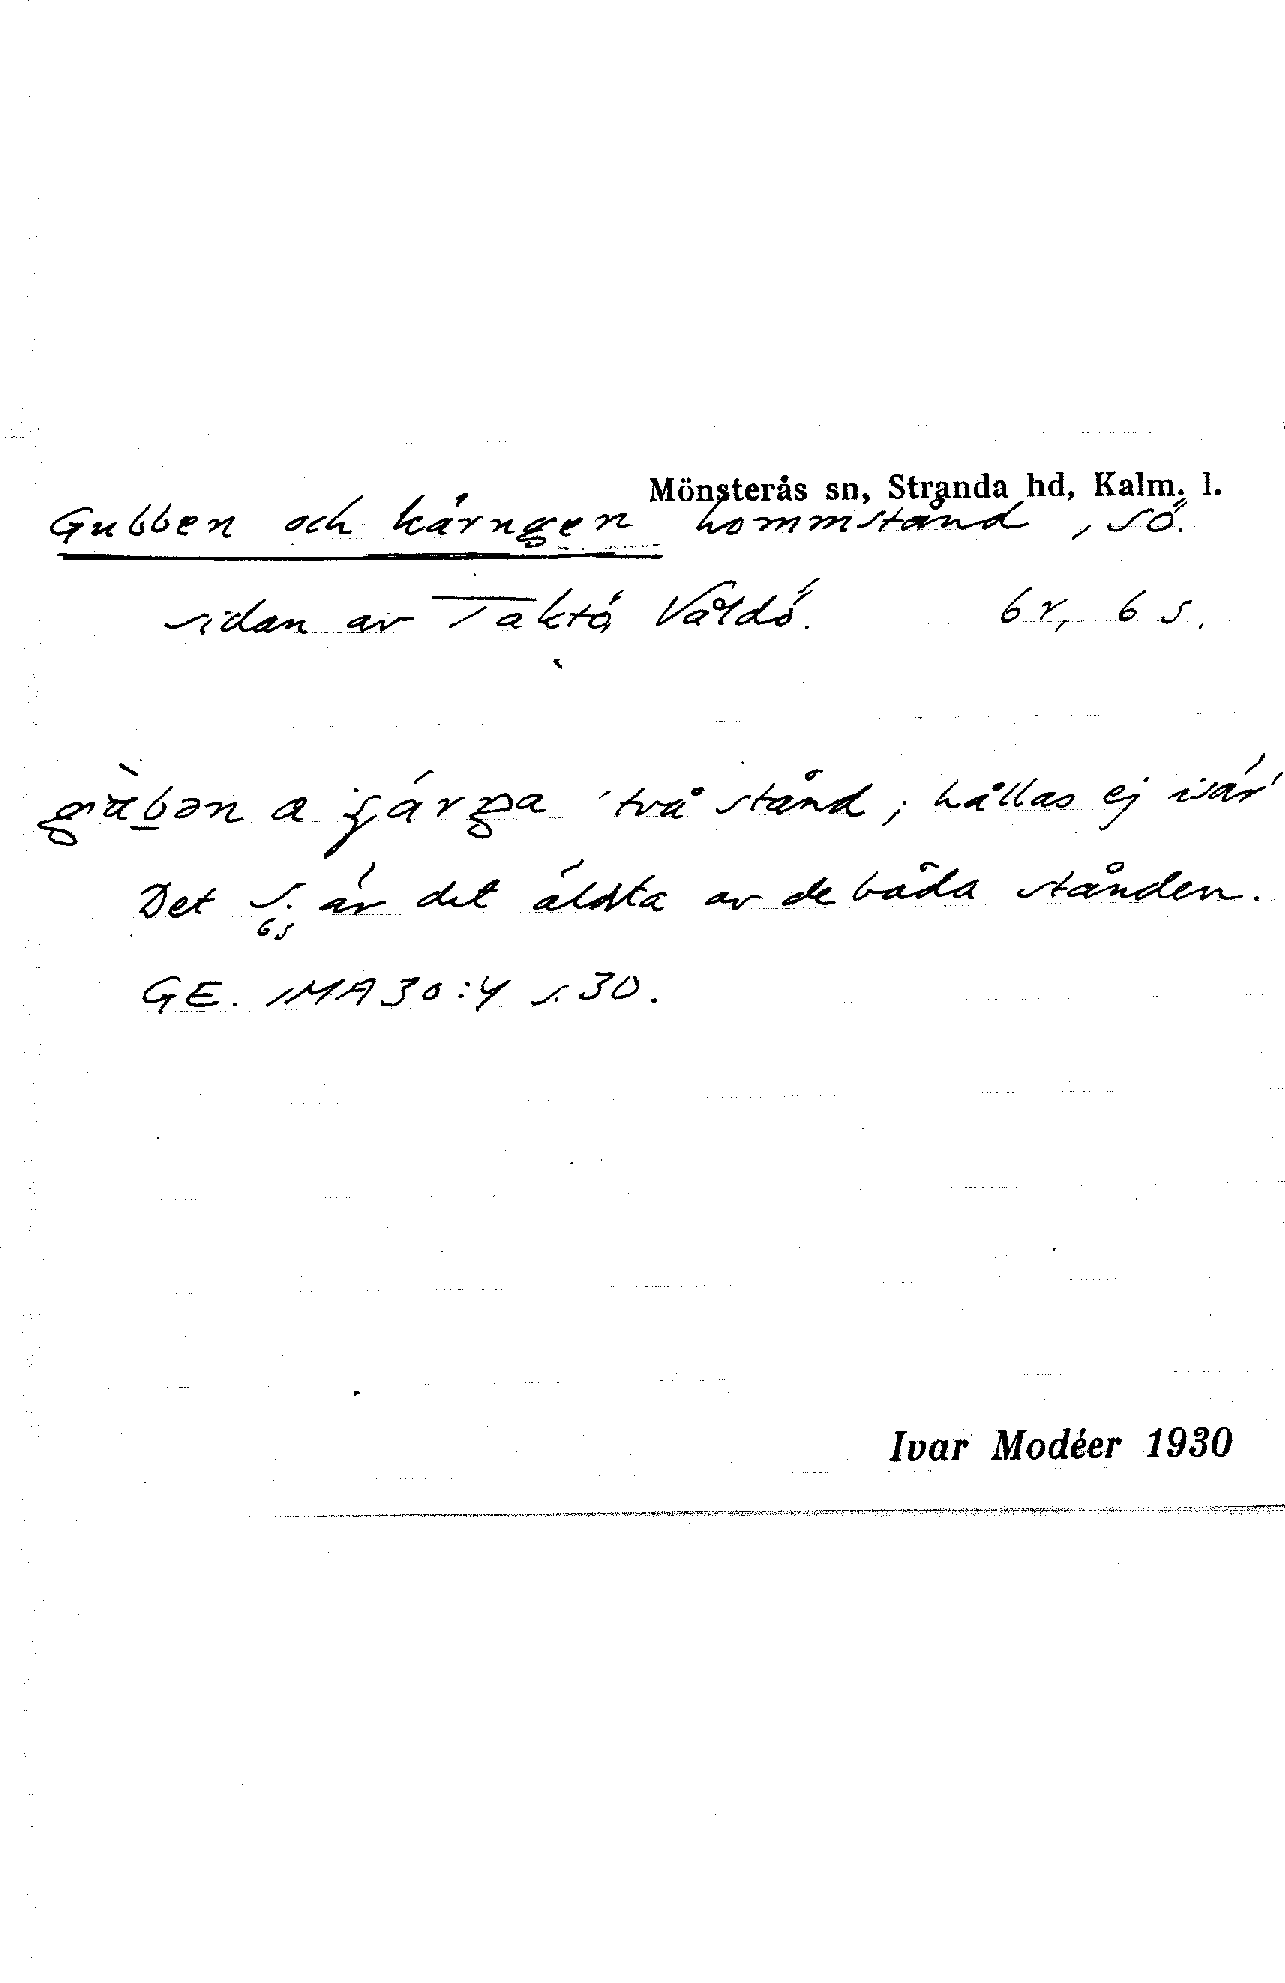 Mönsterås sn, Stranda hd, Kalm. l.
Gubben och kärngen hommstånd, sö.
sidan av Taktö, Våldö. 6 r, 6 s.
gubən a çärŋa 'två stånd; hållas ej isär'
Det s. är det äldsta av de båda stånden.
6 s
GE. IMA 30:4 s. 30.
Ivar Modéer 1930